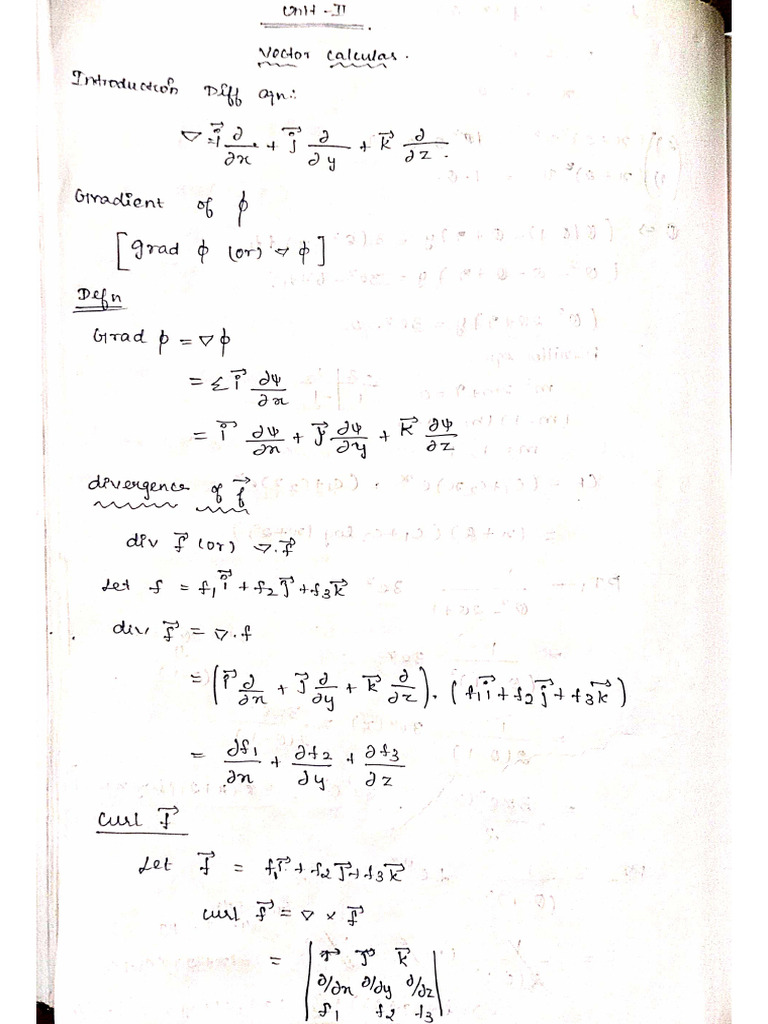 Unit - II
Vector Calculas.
Introduction Diff eqn:
∇ = i⃗ ∂/∂x + j⃗ ∂/∂y + k⃗ ∂/∂z.
Gradient of ϕ
[grad ϕ (or) ∇ ϕ]
Defn
Grad ϕ = ∇ϕ
= Σ i⃗ ∂ψ/∂x
= i⃗ ∂ψ/∂x + j⃗ ∂ψ/∂y + k⃗ ∂ψ/∂z
divergence of f⃗
div f⃗ (or) ∇.f⃗
Let f = f₁i⃗ + f₂j⃗ + f₃k⃗
div, f⃗ = ∇.f
= (i⃗ ∂/∂x + j⃗ ∂/∂y + k⃗ ∂/∂z). (f₁i⃗ + f₂j⃗ + f₃k⃗)
= ∂f₁/∂x + ∂f₂/∂y + ∂f₃/∂z
Curl f⃗
Let f⃗ = f₁i⃗ + f₂j⃗ + f₃k⃗
curl f⃗ = ∇ × f⃗
= | i⃗ j⃗ k⃗
∂/∂x ∂/∂y ∂/∂z
f₁ f₂ f₃ |